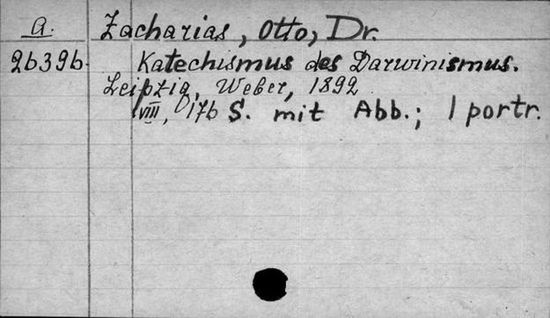 a. Zacharias, Otto, Dr.
26396. Katechismus des Darwinismus.
Leipzig, Weber, 1892
VIII, 176 S. mit Abb.; 1 portr.